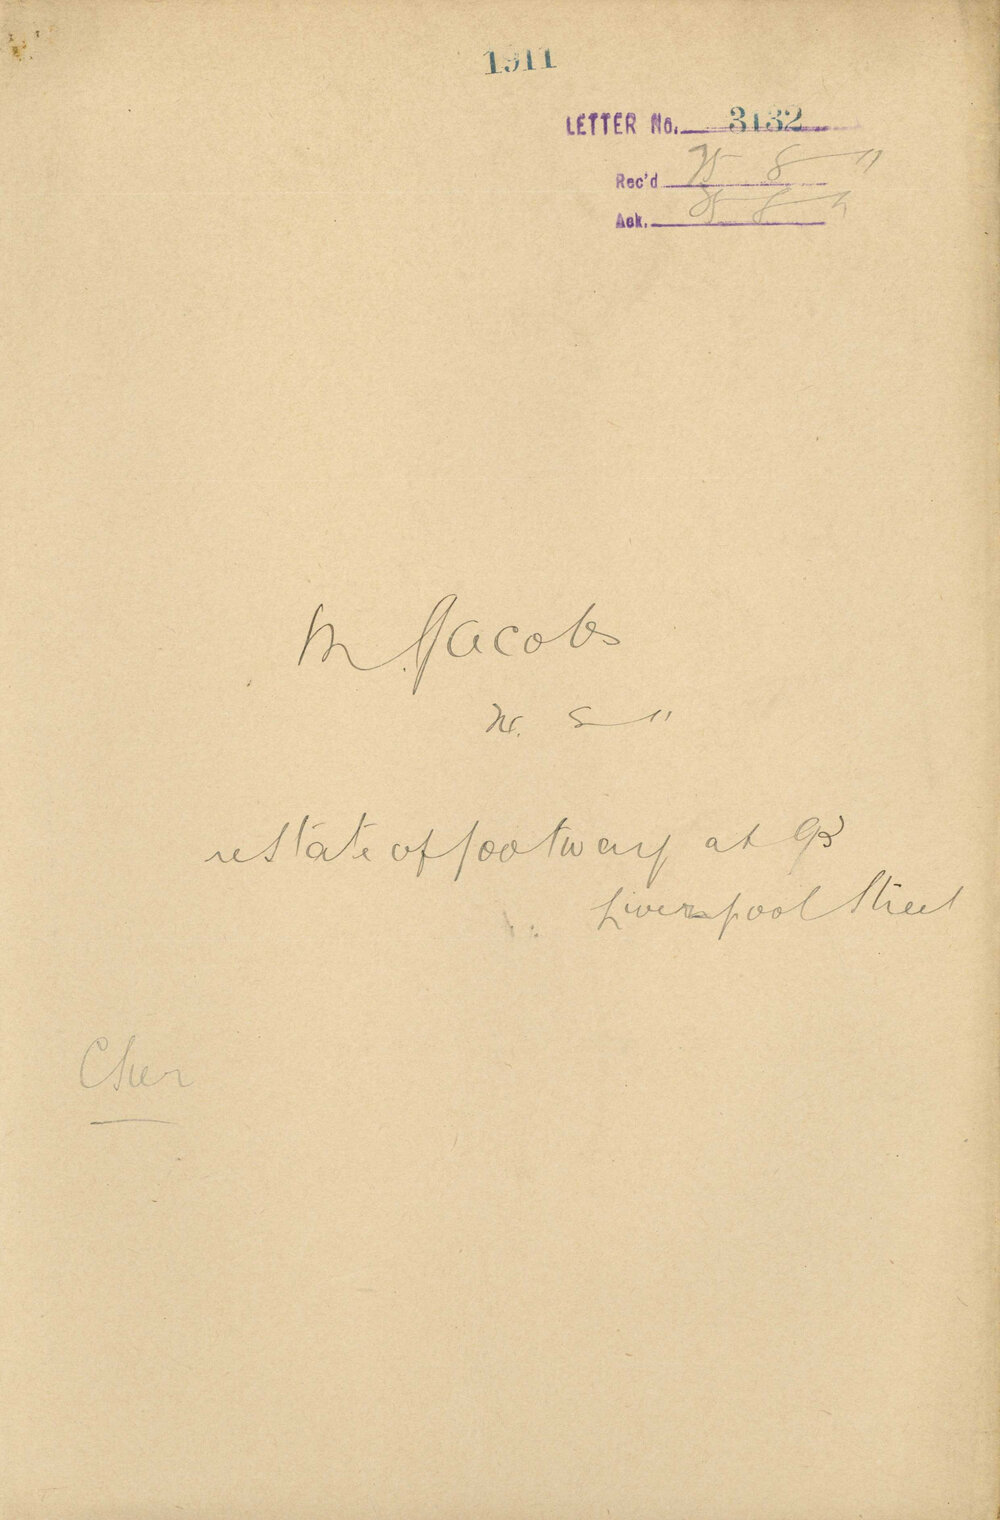 1911
LETTER No. 3132
Rec'd 25 8 11
Ack. 8
M Jacobs
24. 8 11
re State of footway at 93
Liverpool Street